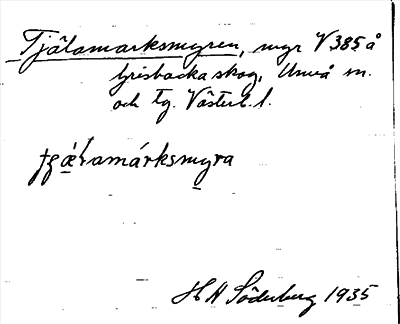 Tjälamarksmyren, myr V 385 å
Grisbacka skog, Umeå sn.
och tg. Västerb. l.
H N Söderberg 1935